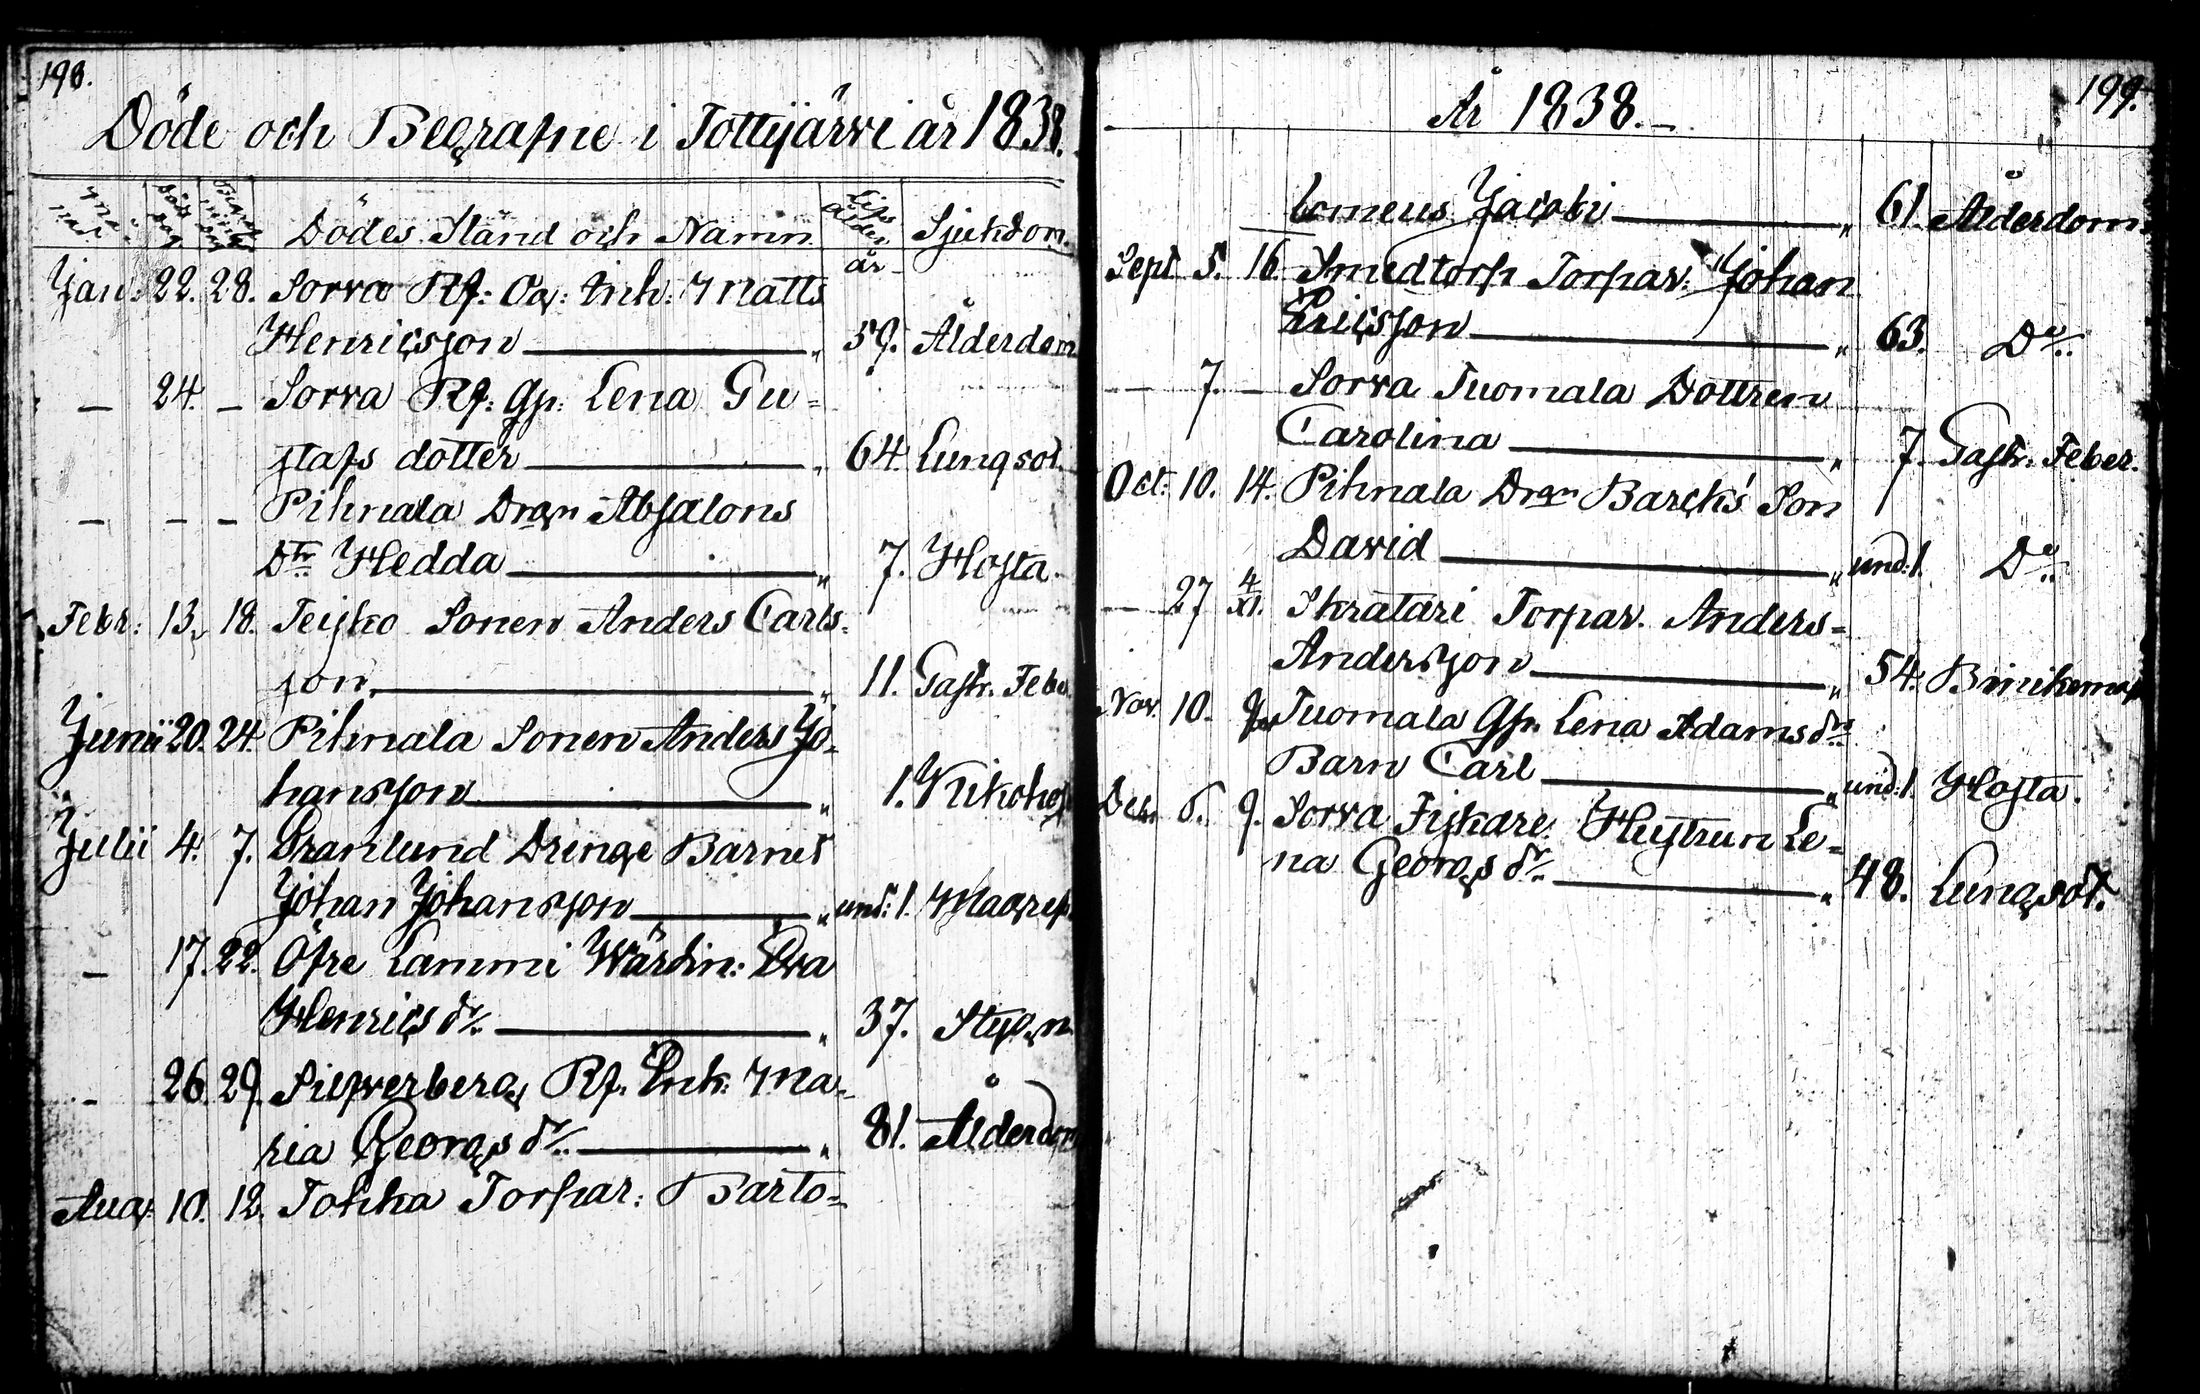 198.
Döde och Begrafne i Tottijärvi år 1838.
Måna-
Död
Begraf
Dödes Stånd och Namn
Lifs Ålder
Sjukdom.
år
Jan: 22. 28. Sorva Rf: Enk: Matts
Henricsson " 59. Ålderdom
— 24. — Sorva Rf: Gf: Lena Gu=
stafs dotter " 64. Lungsot.
— — — Pihnala Drgn Absalons
Dtr Hedda " 7. Hosta.
Febr: 13. 18. Teisko Sonen Anders Carls=
son. " 11. Gastr. Feber
Junii 20. 24. Pihnala Sonen Anders Jo=
hansson " 1. Kikhos
Julii 4. 7. Granlund Drenge Barnet
Johan Johansson " und: 1. Magref
— 17. 22. Öfre Lammi Wärdin: Eva
Henrics dr. " 37. Stygn
- 26. 29. Silfverberg Rf. Enk: Ma=
ria Georgs dr. " 81. Ålderdom
Aug: 10. 12. Tohka Torpar: Barto=
År 1838.
199.
lomeus Jacobi " 61. Ålderdom.
Sept 5. 16. Smedtorp Torpar: Johan
Ericsson " 63. Do.
— 7. — Sorva Tuomala Dottren
Carolina " 7. Gastr. Feber.
Oct: 10. 14. Pihnala Drgn Barcks Son
David " und: 1. Do.
— 27 4/XI. Skratari Torpar. Anders=
Andersson " 54.
Nov. 10. Tuomala Gf. Lena Adams dr.
Barn Carl " und: 1. Hosta.
Dec. 6. 9. Sorva Fiskare Hustrun Le=
na Georgs dr. " 48. Lungsot.